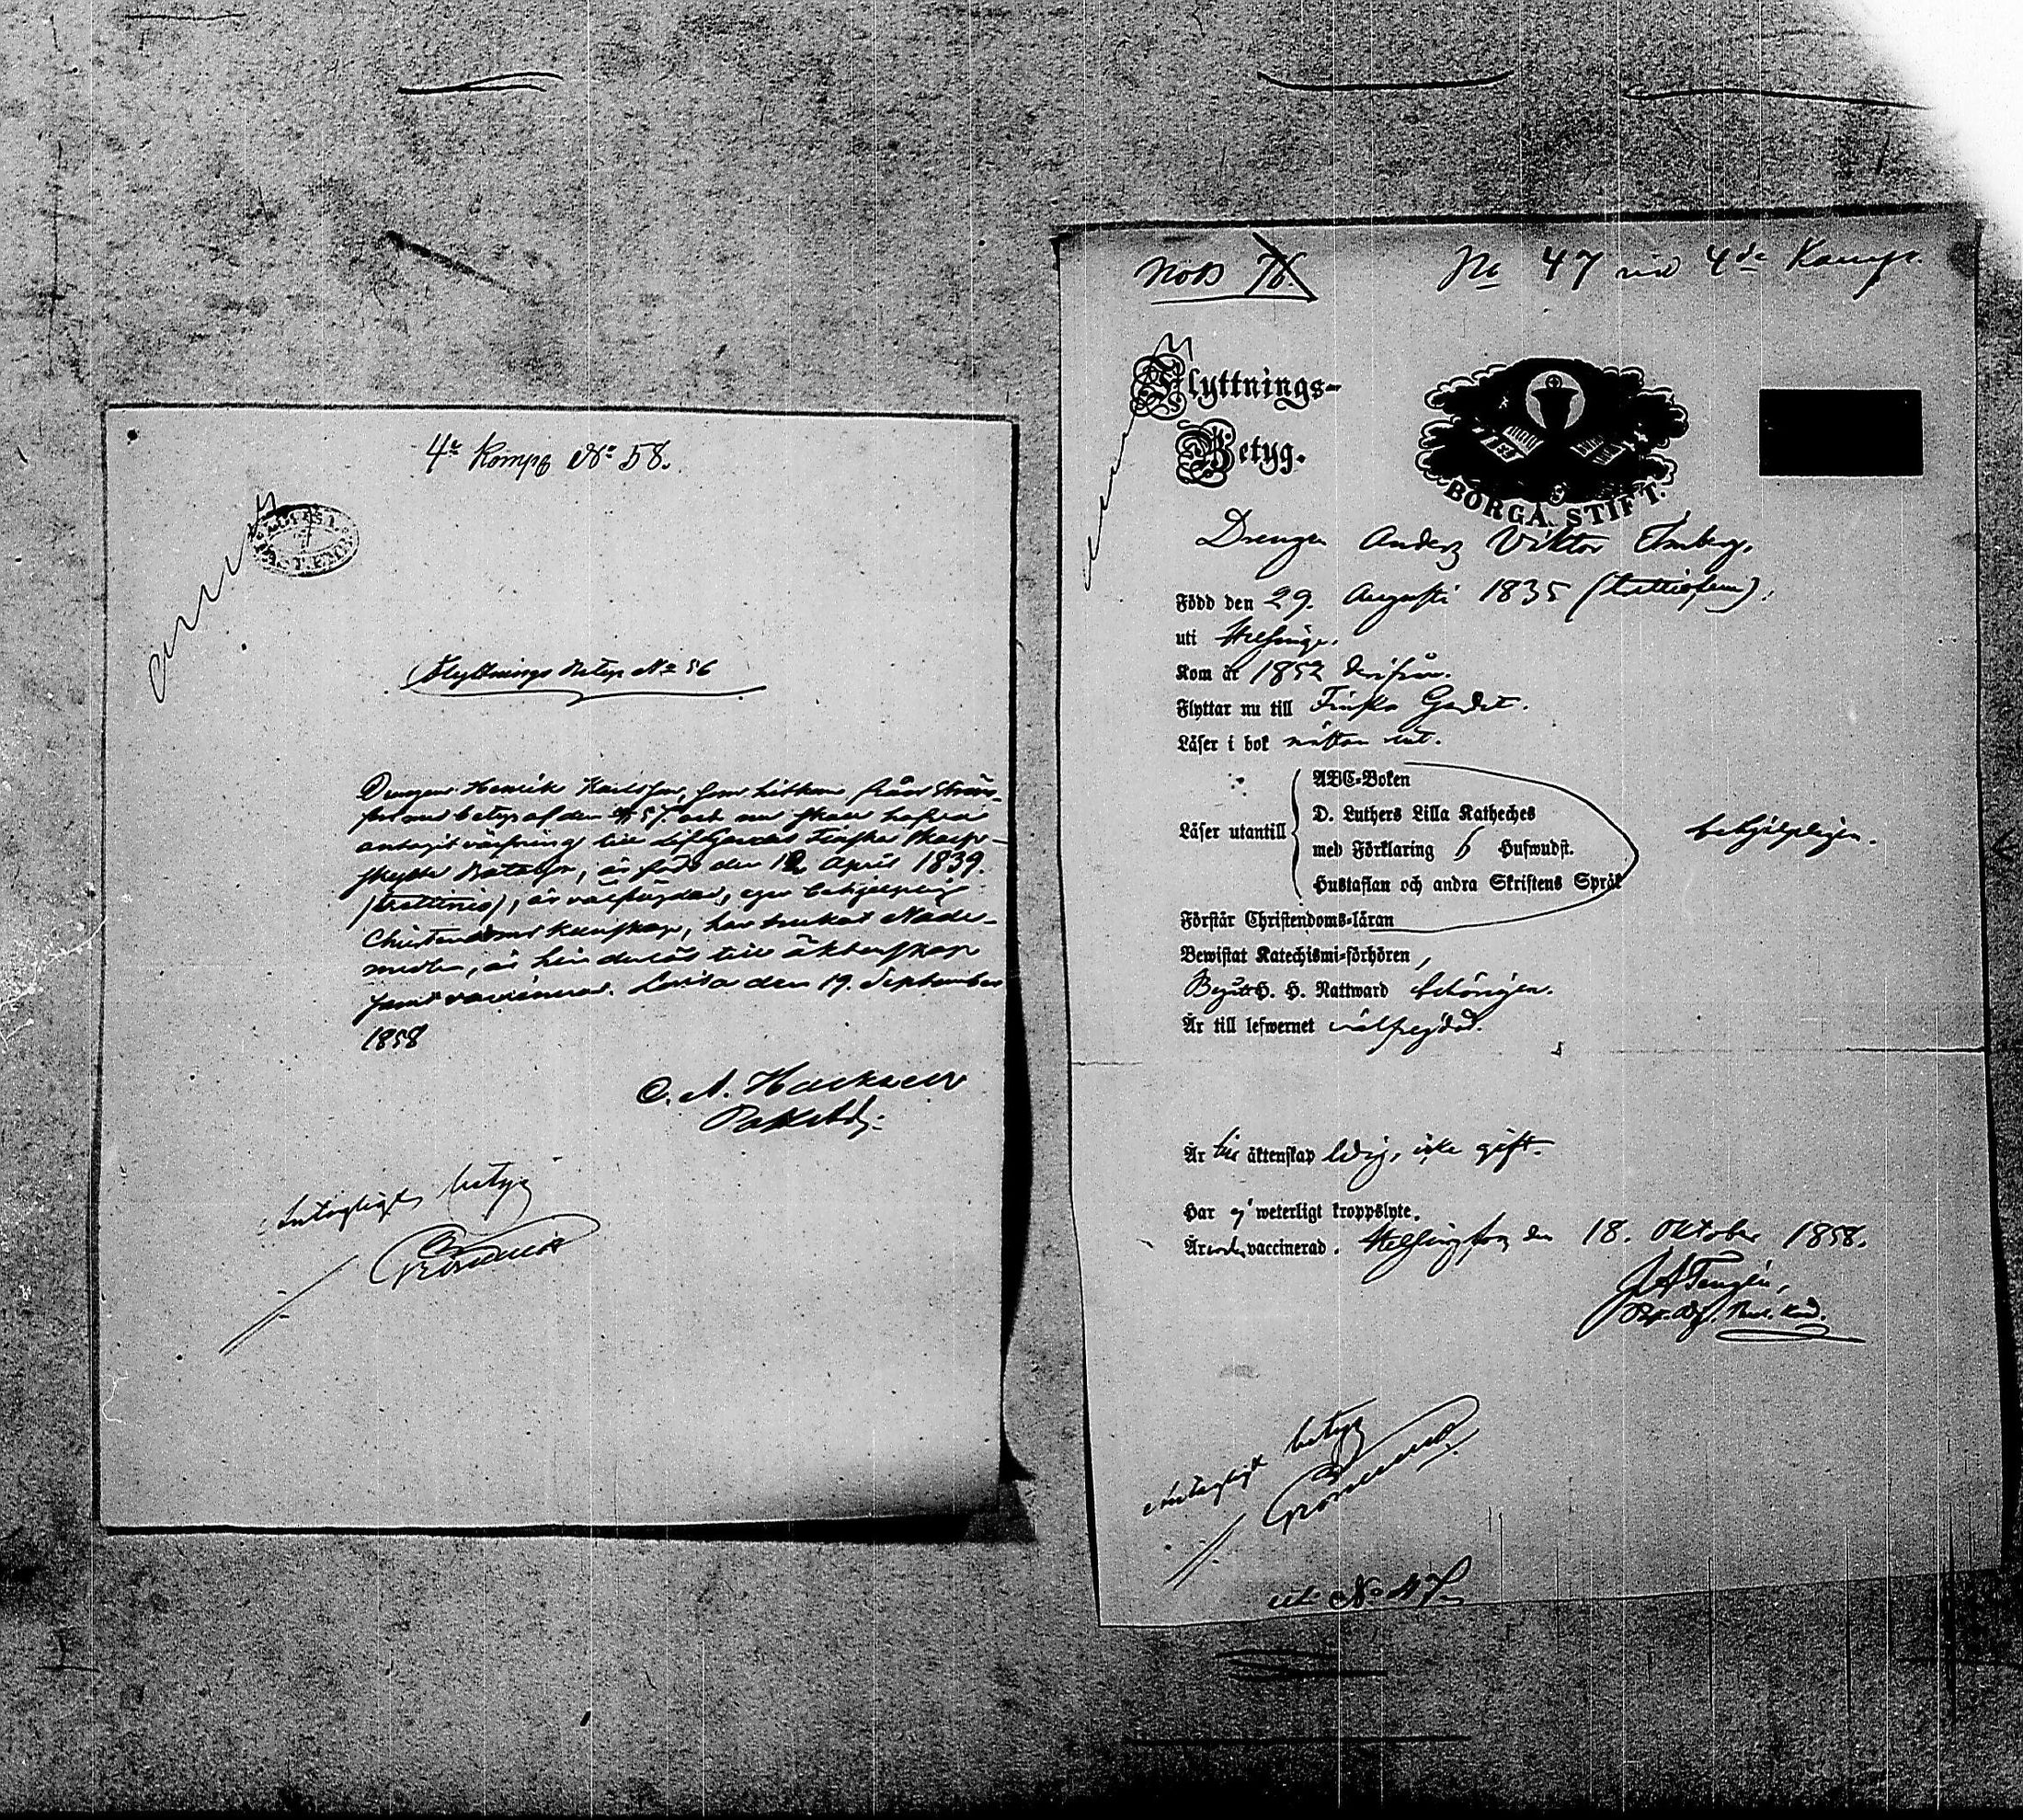 4:e Komp. No 58.
Flyttnings Betyg No 56
Drengen Henrik Karlsson, som hitkom från Ström-
fors med betyg af den 57 och nu skall hafva
antagit värfning till LifGardets Finska Skarp-
skytte Bataljon, är född den 12 April 1839.
(trettinio), är välfrejdad, eger behjelplig
Christendoms kunskap, har brukat Nåde-
medlen, är hinderlös till äktenskap
samt vaccinerad. Lovisa den 19. September
1858
C. A. Hacksell
antagligt betyg
No 47 vid 4de Komp.
Flyttnings-
Betyg.
BORGÅ STIFT.
Drengen Anders Viktor
Född den 29. Augusti 1835 (trettiofem).
uti Helsinge.
Kom år 1852 derifrån.
Flyttar nu till Finska Gardet.
Läser i bok nästan rent.
Läser utantill
ABC-Boken
D. Luthers Lilla Katheches
med Förklaring Hufwudst.
Hustaflan och andra Skriftens Språk
behjelpligen.
Förstår Christendoms-läran
Bewistat Katechismi-förhören,
Begått H. H. Nattward behörigen.
Är till lefwernet välfrejdad.
Är till äktenskap ledig, icke gift.
Har ej weterligt kroppslyte.
Är vaccinerad. Helsingfors den 18. Oktober 1858.
antagligt betyg
No 47